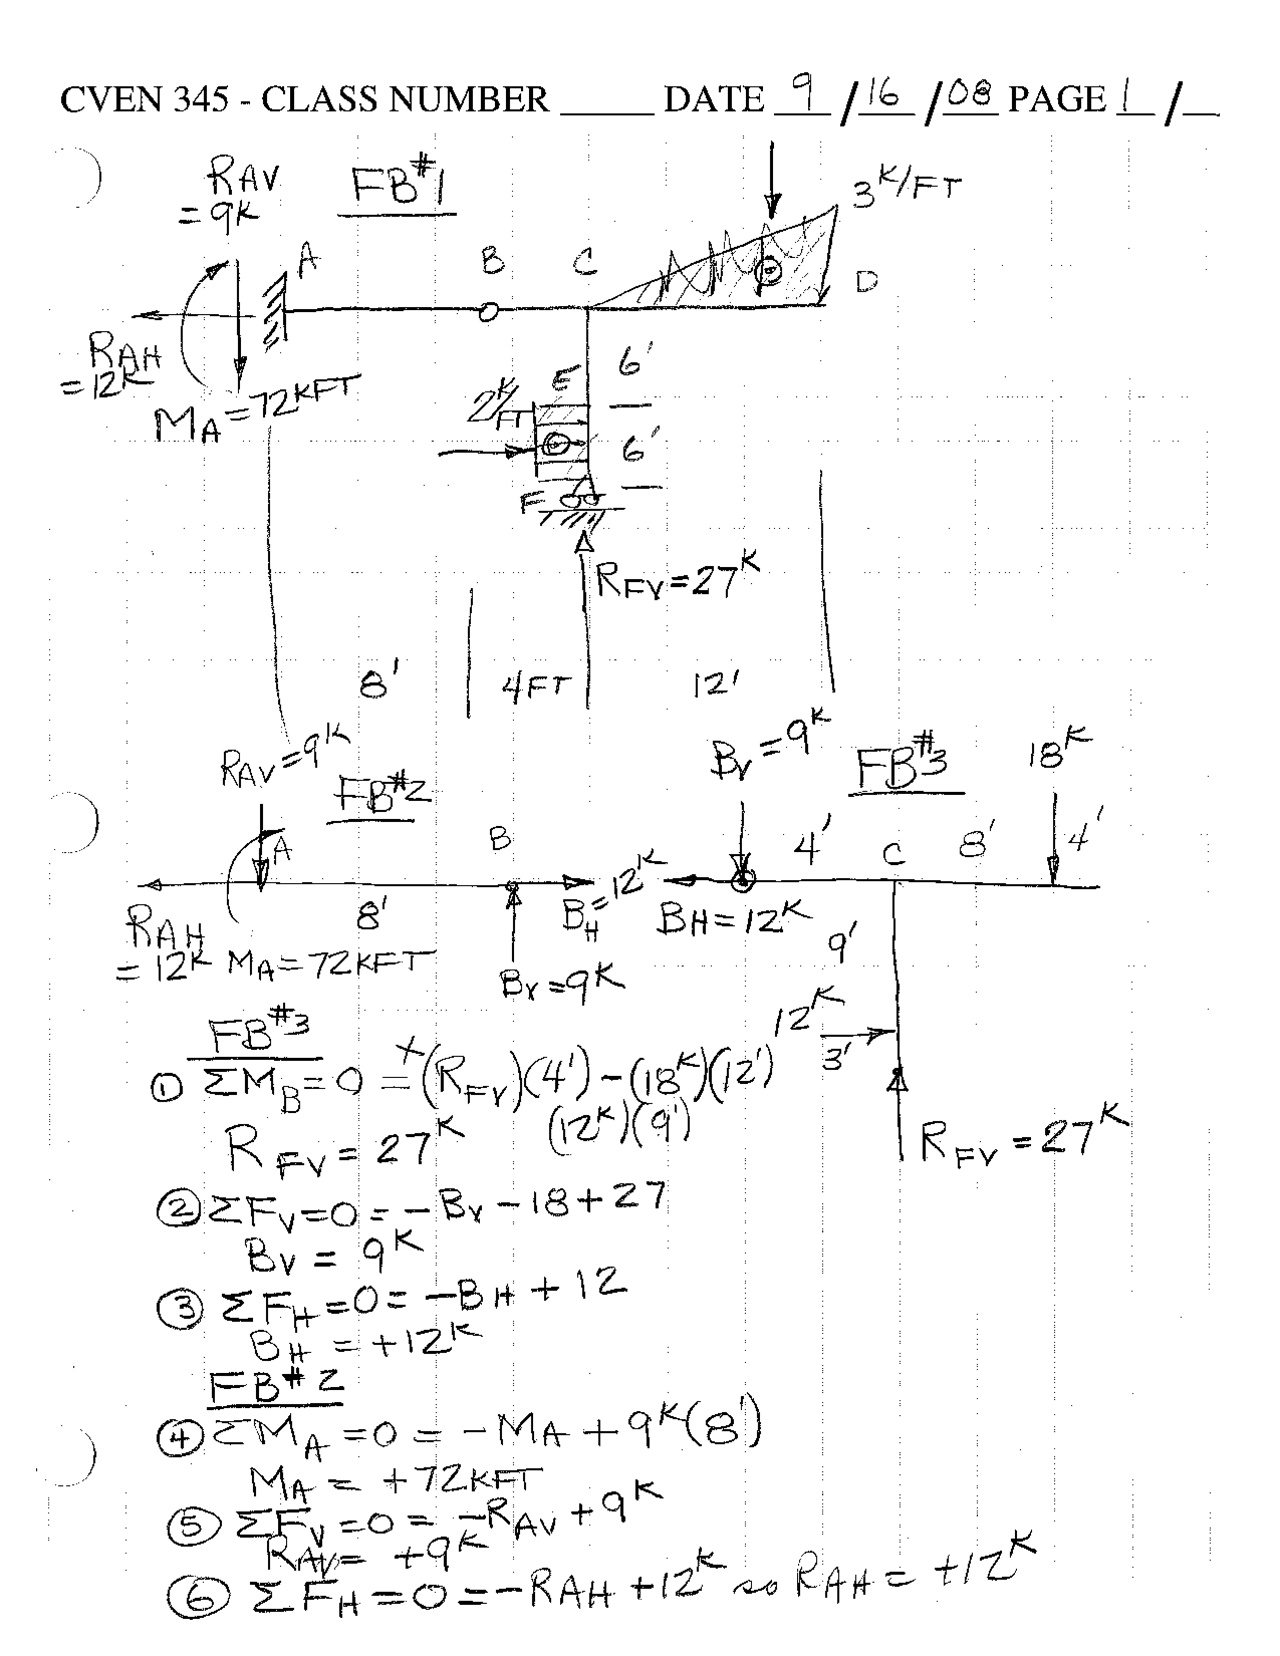 CVEN 345 - CLASS NUMBER _____ DATE 9 / 16 / 08 PAGE 1 / __
RAV
= 9K
FB#1
3 K/FT
A
B
C
D
RAH
= 12K
MA = 72KFT
2K/FT
E
6'
6'
F
RFV = 27K
8'
4FT
12'
RAV = 9K
FB#2
BV = 9K
FB#3
18K
A
B
8'
BH = 12K
RAH
= 12K
MA = 72KFT
BV = 9K
4'
C
8'
4'
BH = 12K
9'
12K
3'
RFV = 27K
FB#3
① ΣMB = 0 = +(RFV)(4') - (18K)(12')
(12K)(9')
RFV = 27K
② ΣFV = 0 = -BV - 18 + 27
BV = 9K
③ ΣFH = 0 = -BH + 12
BH = +12K
FB#2
④ ΣMA = 0 = -MA + 9K(8')
MA = +72KFT
⑤ ΣFV = 0 = -RAV + 9K
RAV = +9K
⑥ ΣFH = 0 = -RAH + 12K so RAH = +12K